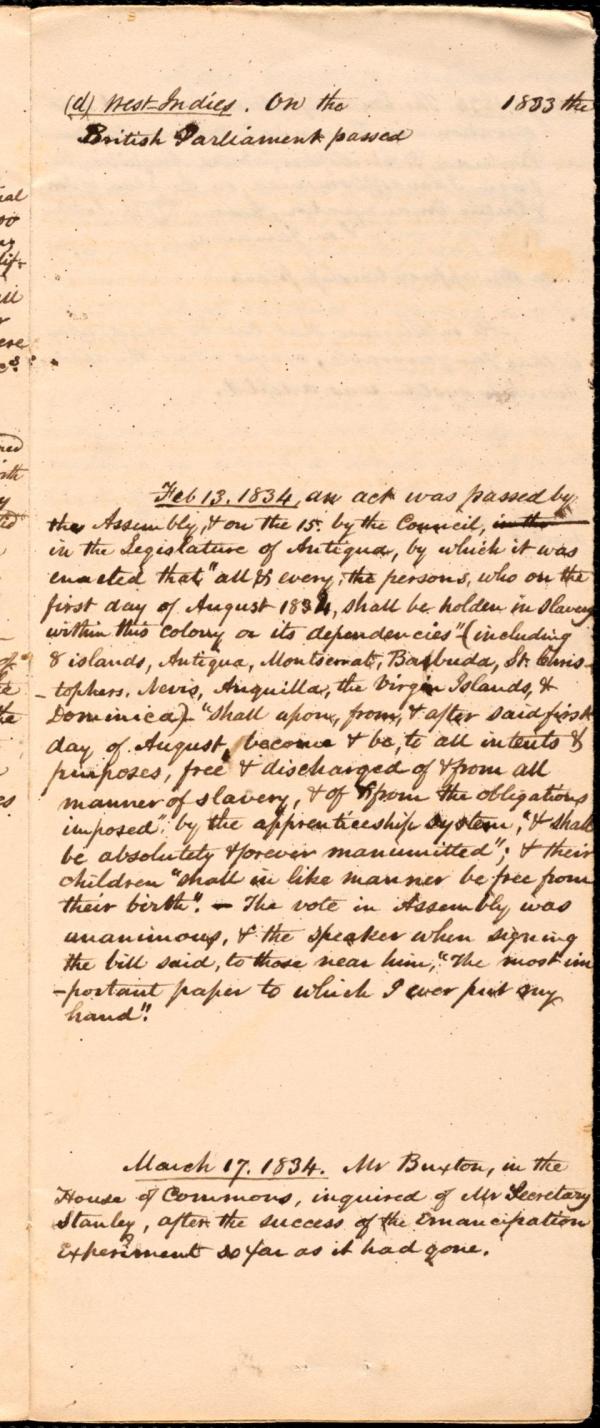 (d) West-Indies. On the 1833 the
British Parliament passed
Feb 13. 1834, an act was passed by
the Assembly, & on the 15. by the Council, in the
in the Legislature of Antigua, by which it was
enacted that "all & every, the persons, who on the
first day of August 1834, shall be holden in slavery
within this colony or its dependencies"-(including
8 islands, Antigua, Montserrat, Barbuda, St. Chris-
-tophers. Nevis, Anguilla, the Virgin Islands, &
Dominica)-"shall upon, from, & after said first
day of August, become & be, to all intents &
purposes, free & discharged of & from all
manner of slavery, & of & from the obligations
imposed", by the apprenticeship system, "& shall
be absolutely & forever manumitted"; & their
children "shall in like manner be free from
their birth". – The vote in Assembly was
unanimous, & the speaker when signing
the bill said, to those near him, "The most im
-portant paper to which I ever put my
hand".
March 17. 1834. Mr Buxton, in the
House of Commons, inquired of Mr Secretary
Stanley, after the success of the Emancipation
Experiment so far as it had gone.